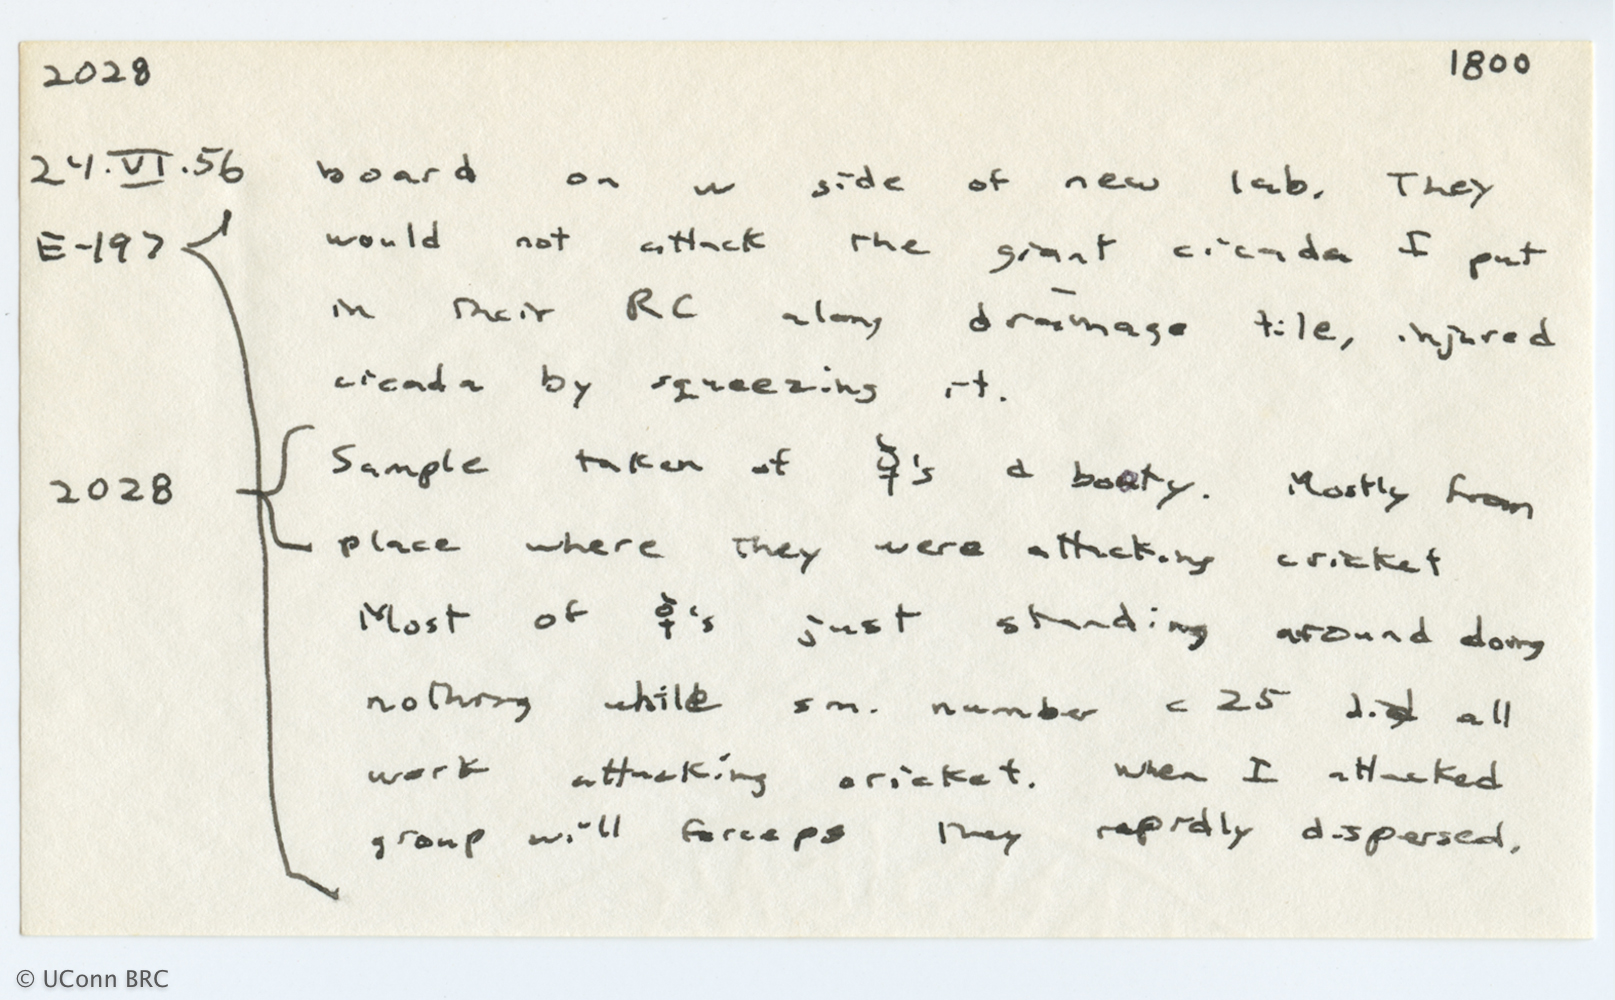 2028 1800
24.VI.56 board on w side of new lab. They
E-197 would not attack the giant cicada I put
in their RC along drainage tile, injured
cicada by squeezing it.
Sample taken of ☿'s & booty. Mostly from
2028
place where they were attacking cricket
Most of ☿'s just standing around doing
nothing while sm. number c 25 did all
work attacking cricket. When I attacked
group will forceps they rapidly dispersed.
© UConn BRC